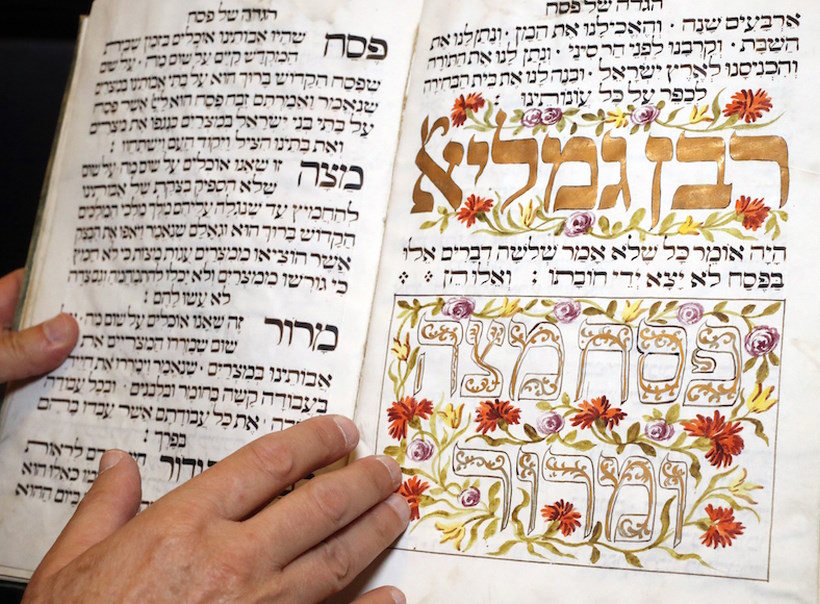 הגדה של פסח
ארבעים שנה · והאכילנו את המן · ונתן לנו את
השבת · וקרבנו לפני הר סיני · ונתן לנו את התורה
והכניסנו לארץ ישראל · ובנה לנו את בית הבחירה
לכפר על כל עונותינו :
רבן גמליא
היה אומר כל שלא אמר שלשה דברים אלו
בפסח לא יצא ידי חובתו : ואלו הן
פסח מצה
ומרור
הגדה של פסח
פסח שהיו אבותינו אוכלים בזמן שבית
המקדש קיים על שום מה · על שום
שפסח הקדוש ברוך הוא על בתי אבותינו במצרים
שנאמר ואמרתם זבח פסח הוא ליי אשר פסח
על בתי בני ישראל במצרים בנגפו את מצרים
ואת בתינו הציל ויקוד העם וישתחוו :
מצה זו שאנו אוכלים על שום מה · על שום
שלא הספיק בצקת של אבותינו
להחמיץ עד שנגלה עליהם מלך מלכי המלכים
הקדוש ברוך הוא וגאלם שנאמר ויאפו את הבצק
אשר הוציאו ממצרים עגות מצות כי לא חמץ
כי גורשו ממצרים ולא יכלו להתמהמה וגם צדה
לא עשו להם :
מרור זה שאנו אוכלים על שום מה · על
שום שמררו המצריים את חיי
אבותינו במצרים · שנאמר וימררו את חייהם
בעבודה קשה בחומר ובלבנים · ובכל עבודה
את כל עבודתם אשר עבדו בהם
בפרך :
דור ודור חייב אדם לראות
כאלו הוא
ביום ההוא